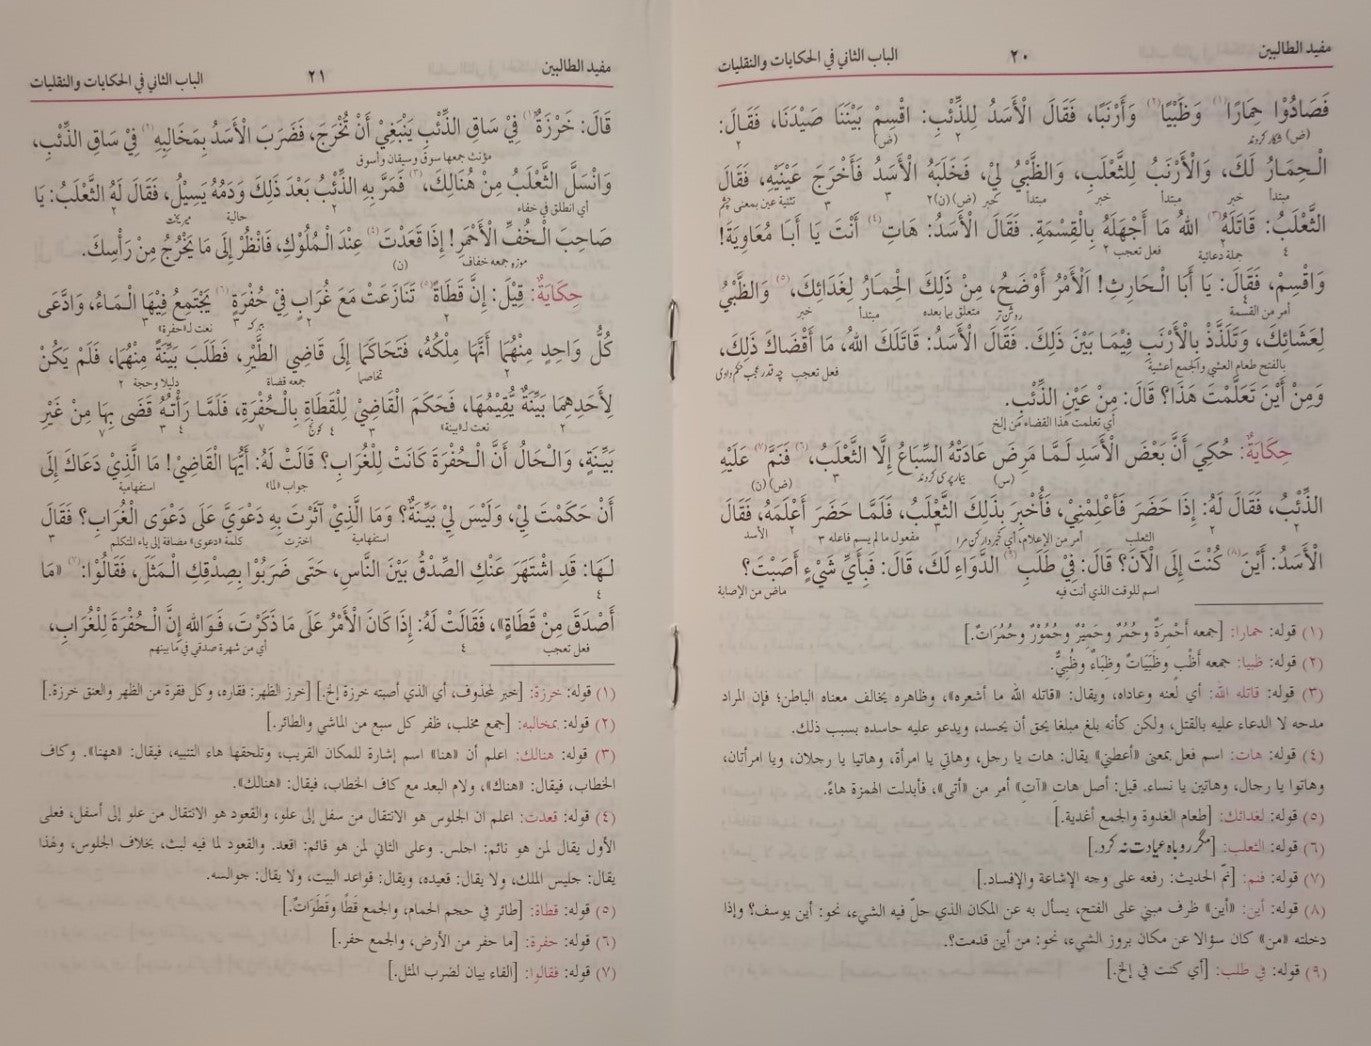 مفيد الطالبين ٢٠ الباب الثاني في الحكايات والنقليات
فَصَادُوْا حِمَارًا(١) وَظَبْيًا(٢) وَأَرْنَبًا، فَقَالَ الْأَسَدُ لِلذِّئْبِ: اقْسِمْ بَيْنَنَا صَيْدَنَا، فَقَالَ:
(ض) شكار كردند ٢ (ض) ٢
الْحِمَارُ لَكَ، وَالْأَرْنَبُ لِلثَّعْلَبِ، وَالظَّبْيُ لِيْ، فَخَلَبَهُ الْأَسَدُ فَأَخْرَجَ عَيْنَيْهِ، فَقَالَ
مبتدأ خبر مبتدأ خبر مبتدأ خبر (ض) (ن) ٢ ٣ ٣ تثنية عين بمعنى چشم
الثَّعْلَبُ: قَاتَلَهُ(٣) اللهُ مَا أَجْهَلَهُ بِالْقِسْمَةِ. فَقَالَ الْأَسَدُ: هَاتِ(٤) أَنْتَ يَا أَبَا مُعَاوِيَةَ!
٤ جملة دعائية فعل تعجب ٢
وَاقْسِمْ، فَقَالَ: يَا أَبَا الْحَارِثِ! اَلْأَمْرُ أَوْضَحُ، مِنْ ذَلِكَ الْحِمَارُ لِغَدَائِكَ،(٥) وَالظَّبْيُ
أمر من القسمة ٤ روشن تر متعلق بما بعده مبتدأ خبر
لِعَشَائِكَ، وَتَلَذَّذْ بِالْأَرْنَبِ فِيْمَا بَيْنَ ذَلِكَ. فَقَالَ الْأَسَدُ: قَاتَلَكَ اللهُ، مَا أَقْضَاكَ ذَلِكَ،
بالفتح طعام العشي والجمع أعشية فعل تعجب چه قدر عجب حكم دادى
وَمِنْ أَيْنَ تَعَلَّمْتَ هَذَا؟ قَالَ: مِنْ عَيْنِ الذِّئْبِ.
أي تعلمت هذا القضاء من إلخ
حِكَايَةٌ: حُكِيَ أَنَّ بَعْضَ الْأَسَدِ لَمَّا مَرِضَ عَادَتْهُ السِّبَاعُ إِلَّا الثَّعْلَبُ،(٦) فَنَمَّ(٧) عَلَيْهِ
(س) بيمار پرسى كردند ٣ (ض) (ن)
الذِّئْبُ، فَقَالَ لَهُ: إِذَا حَضَرَ فَأَعْلِمْنِيْ، فَأُخْبِرَ بِذَلِكَ الثَّعْلَبُ، فَلَمَّا حَضَرَ أَعْلَمَهُ، فَقَالَ
٢ ٢ الثعلب أمر من الإعلام، أي خبردار كن مرا ٣ مفعول ما لم يسم فاعله ٣ ٢ الأسد
الْأَسَدُ: أَيْنَ(٨) كُنْتَ إِلَى الْآنَ؟ قَالَ: فِيْ طَلَبِ(٩) الدَّوَاءِ لَكَ، قَالَ: فَبِأَيِّ شَيْءٍ أَصَبْتَ؟
اسم للوقت الذي أنت فيه ماض من الإصابة
(١) قوله: حمارا: [جمعه أَحْمِرَةٌ وحُمُرٌ وحَمِيْرٌ وحُمُوْرٌ وحُمُرَاتٌ.]
(٢) قوله: ظبيا: جمعه أَظْبٍ وظَبَيَاتٌ وظِبَاءٌ وظُبِيٌّ.
(٣) قوله: قاتله الله: أي لعنه وعاداه، ويقال: «قاتله الله ما أشعره»، وظاهره يخالف معناه الباطن؛ فإن المراد
مدحه لا الدعاء عليه بالقتل، ولكن كأنه بلغ مبلغا يحق أن يحسد، ويدعو عليه حاسده بسبب ذلك.
(٤) قوله: هات: اسم فعل بمعنى «أعطني» يقال: هات يا رجل، وهاتي يا امرأة، وهاتيا يا رجلان، ويا امرأتان،
وهاتوا يا رجال، وهاتين يا نساء. قيل: أصل هات «آتِ» أمر من «أتى»، فأبدلت الهمزة هاءً.
(٥) قوله: لغدائك: [طعام الغدوة والجمع أغدية.]
(٦) قوله: الثعلب: [مگر روباه عيادت نه كرد.]
(٧) قوله: فنم: [نمّ الحديث: رفعه على وجه الإشاعة والإفساد.]
(٨) قوله: أين: «أين» ظرف مبني على الفتح، يسأل به عن المكان الذي حلّ فيه الشيء، نحو: أين يوسف؟ وإذا
دخلته «من» كان سؤالا عن مكان بروز الشيء، نحو: من أين قدمت؟.
(٩) قوله: في طلب: [أي كنت في إلخ.]
مفيد الطالبين ٢١ الباب الثاني في الحكايات والنقليات
قَالَ: خَرْزَةٌ(١) فِيْ سَاقِ الذِّئْبِ يَنْبَغِيْ أَنْ تُخْرَجَ، فَضَرَبَ الْأَسَدُ بِمَخَالِبِهِ(٢) فِيْ سَاقِ الذِّئْبِ،
مؤنث جمعها سوق وسيقان وأسوق
وَانْسَلَّ الثَّعْلَبُ مِنْ هُنَالِكَ،(٣) فَمَرَّ بِهِ الذِّئْبُ بَعْدَ ذَلِكَ وَدَمُهُ يَسِيْلُ، فَقَالَ لَهُ الثَّعْلَبُ: يَا
أي انطلق في خفاء ٢ حالية ميريخت ٢
صَاحِبَ الْخُفِّ الْأَحْمَرِ! إِذَا قَعَدْتَ(٤) عِنْدَ الْمُلُوْكِ، فَانْظُرْ إِلَى مَا يَخْرُجُ مِنْ رَأْسِكَ.
موزه جمعه خفاف (ن)
حِكَايَةٌ: قِيْلَ: إِنَّ قَطَاةً(٥) تَنَازَعَتْ مَعَ غُرَابٍ فِيْ حُفْرَةٍ(٦) يَجْتَمِعُ فِيْهَا الْمَاءُ، وَادَّعَى
٢ ٢ بركه ٣ نعت لـ«حفرة» ٣
كُلُّ وَاحِدٍ مِنْهُمَا أَنَّهَا مِلْكُهُ، فَتَحَاكَمَا إِلَى قَاضِي الطَّيْرِ، فَطَلَبَ بَيِّنَةً مِنْهُمَا، فَلَمْ يَكُنْ
٢ تخاصما جمعه قضاة دليلا وحجة ٢
لِأَحَدِهِمَا بَيِّنَةٌ يُّقِيْمُهَا، فَحَكَمَ الْقَاضِيْ لِلْقَطَاةِ بِالْحُفْرَةِ، فَلَمَّا رَأَتْهُ قَضَى بِهَا مِنْ غَيْرِ
٢ نعت لـ«بينة» ٣ ٤ ٧ ٣ ٤ ٧
بَيِّنَةٍ، وَالْحَالُ أَنَّ الْحُفْرَةَ كَانَتْ لِلْغُرَابِ؟ قَالَتْ لَهُ: أَيُّهَا الْقَاضِيْ! مَا الَّذِيْ دَعَاكَ إِلَى
جواب «لما» استفهامية
أَنْ حَكَمْتَ لِيْ، وَلَيْسَ لِيْ بَيِّنَةٌ؟ وَمَا الَّذِيْ آثَرْتَ بِهِ دَعْوَيَّ عَلَى دَعْوَى الْغُرَابِ؟ فَقَالَ
استفهامية اخترت كلمة «دعوى» مضافة إلى ياء المتكلم ٣
لَهَا: قَدِ اشْتَهَرَ عَنْكِ الصِّدْقُ بَيْنَ النَّاسِ، حَتَى ضَرَبُوْا بِصِدْقِكِ الْمَثَلَ، فَقَالُوْا:(٧) «مَا
٤
أَصْدَقَ مِنْ قَطَاةٍ»، فَقَالَتْ لَهُ: إِذَا كَانَ الْأَمْرُ عَلَى مَا ذَكَرْتَ، فَوَالله إِنَّ الْحُفْرَةَ لِلْغُرَابِ،
فعل تعجب ٤ أي من شهرة صدقي في ما بينهم
(١) قوله: خرزة: [خبر لمحذوف، أي الذي أصبته خرزة إلخ.] [خرز الظهر: فقاره، وكل فقرة من الظهر والعنق خرزة.]
(٢) قوله: بمخالبه: [جمع مخلب، ظفر كل سبع من الماشي والطائر.]
(٣) قوله: هنالك: اعلم أن «هنا» اسم إشارة للمكان القريب، وتلحقها هاء التنبيه، فيقال: «ههنا». وكاف
الخطاب، فيقال: «هناك»، ولام البعد مع كاف الخطاب، فيقال: «هنالك».
(٤) قوله: قعدت: اعلم ان الجلوس هو الانتقال من سفل إلى علو، والقعود هو الانتقال من علو إلى أسفل، فعلى
الأول يقال لمن هو نائم: اجلس. وعلى الثاني لمن هو قائم: اقعد. والقعود لما فيه لبث، بخلاف الجلوس، ولهذا
يقال: جليس الملك، ولا يقال: قعيده، ويقال: قواعد البيت، ولا يقال: جوالسه.
(٥) قوله: قطاة: [طائر في حجم الحمام، والجمع قطًا وقطَوَاتٌ.]
(٦) قوله: حفرة: [ما حفر من الأرض، والجمع حفر.]
(٧) قوله: فقالوا: [الفاء بيان لضرب المثل.]